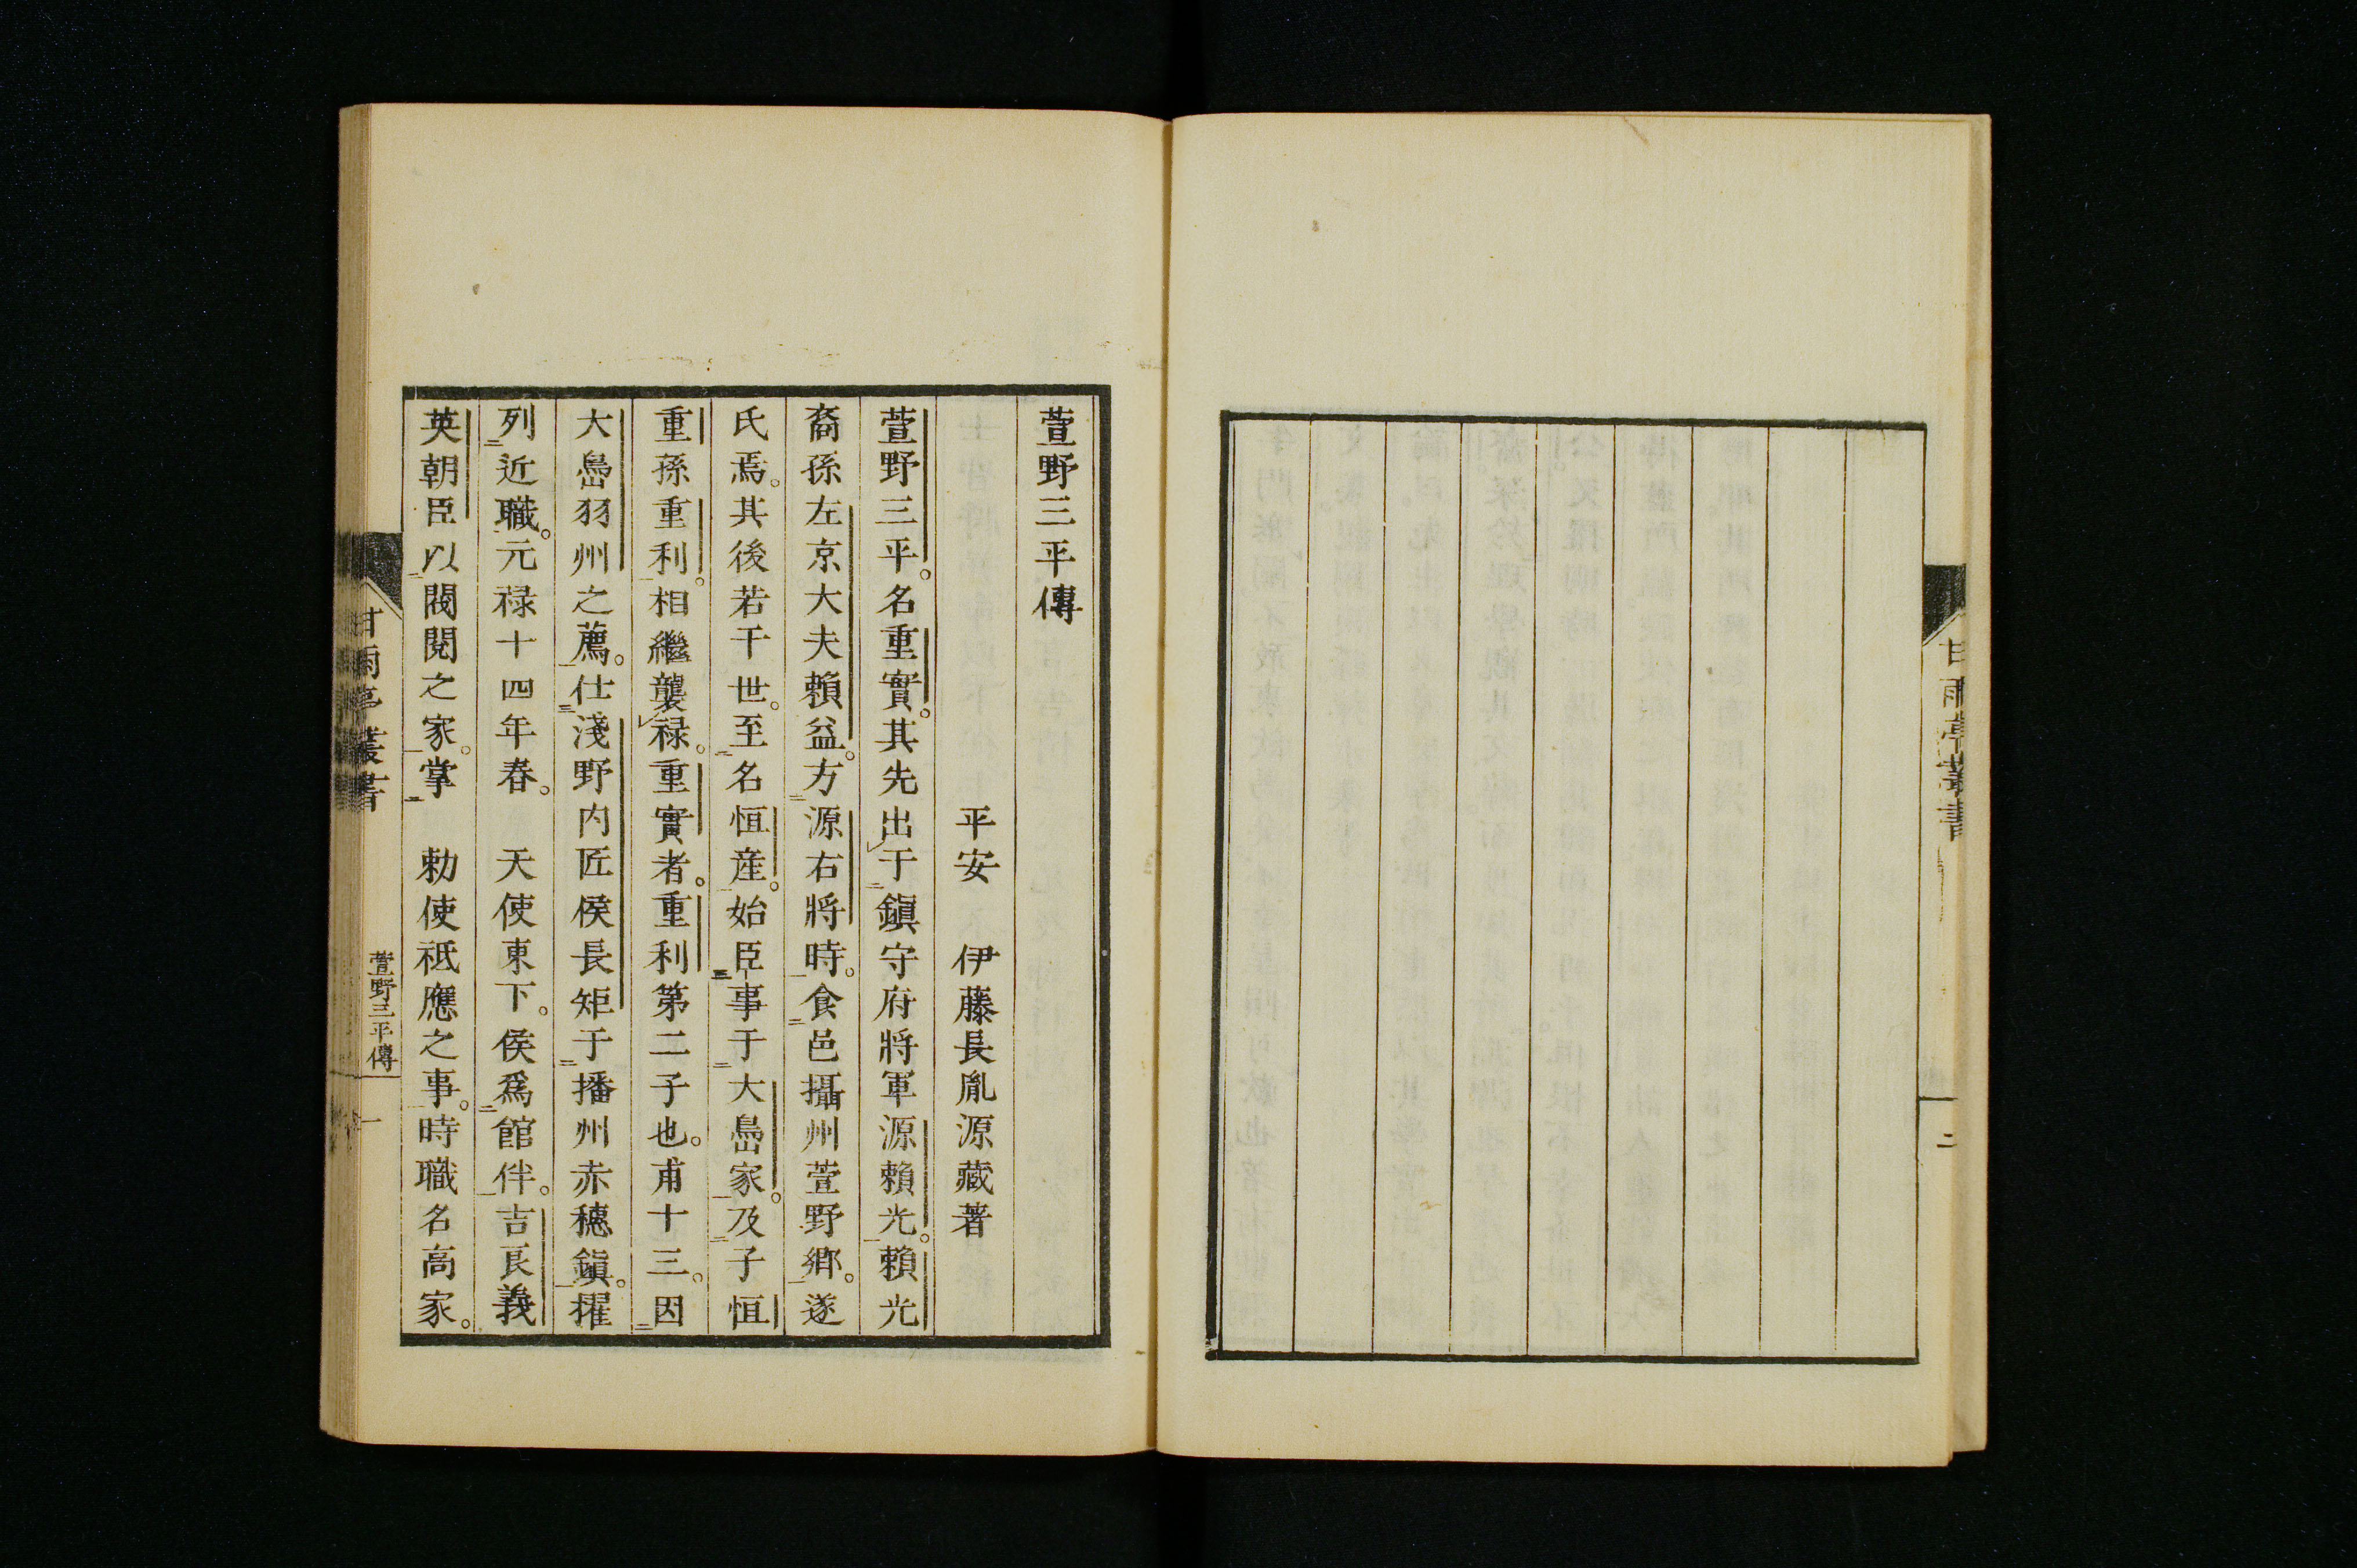 甘雨亭叢書
二
萱野三平傳
平安 伊藤長胤源藏著
萱野三平。名重實。其先出于鎭守府將軍源賴光。賴光
裔孫左京大夫賴益。方源右將時。食邑攝州萱野鄉。遂
氏焉。其後若干世。至名恒産。始臣事于大嶌家。及子恒
重孫重利。相繼襲禄。重實者。重利第二子也。甫十三。因
大嶌羽州之薦。仕淺野内匠侯長矩于播州赤穗鎭。擢
列近職。元禄十四年春。 天使東下。侯爲館伴。吉良義
英朝臣以閥閱之家。掌 勅使祗應之事。時職名高家。
甘雨亭叢書
萱野三平傳
一